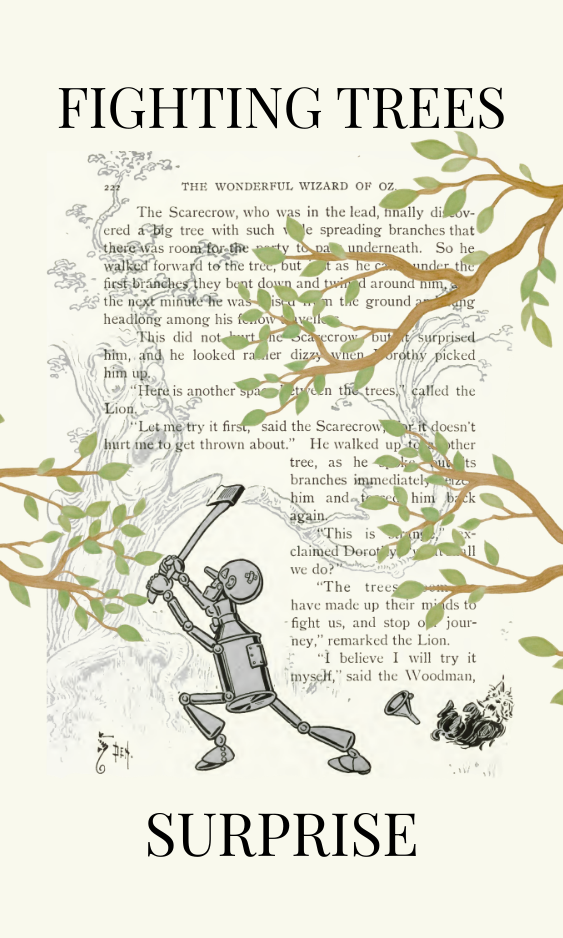 FIGHTING TREES
222 THE WONDERFUL WIZARD OF OZ.
The Scarecrow, who was in the lead, finally discov-
ered a big tree with such wide spreading branches that
there was room for the party to pass underneath. So he
walked forward to the tree, but just as he came under the
first branches they bent down and twined around him, and
the next minute he was raised from the ground and flung
headlong among his fellow travellers.
This did not hurt the Scarecrow, but it surprised
him, and he looked rather dizzy when Dorothy picked
him up.
"Here is another space between the trees," called the
Lion.
"Let me try it first," said the Scarecrow, "for it doesn't
hurt me to get thrown about." He walked up to another
tree, as he spoke, but its
branches immediately seized
him and tossed him back
again.
"This is strange," ex-
claimed Dorothy; "what shall
we do?"
"The trees seem to
have made up their minds to
fight us, and stop our jour-
ney," remarked the Lion.
"I believe I will try it
myself," said the Woodman,
DEN.
SURPRISE